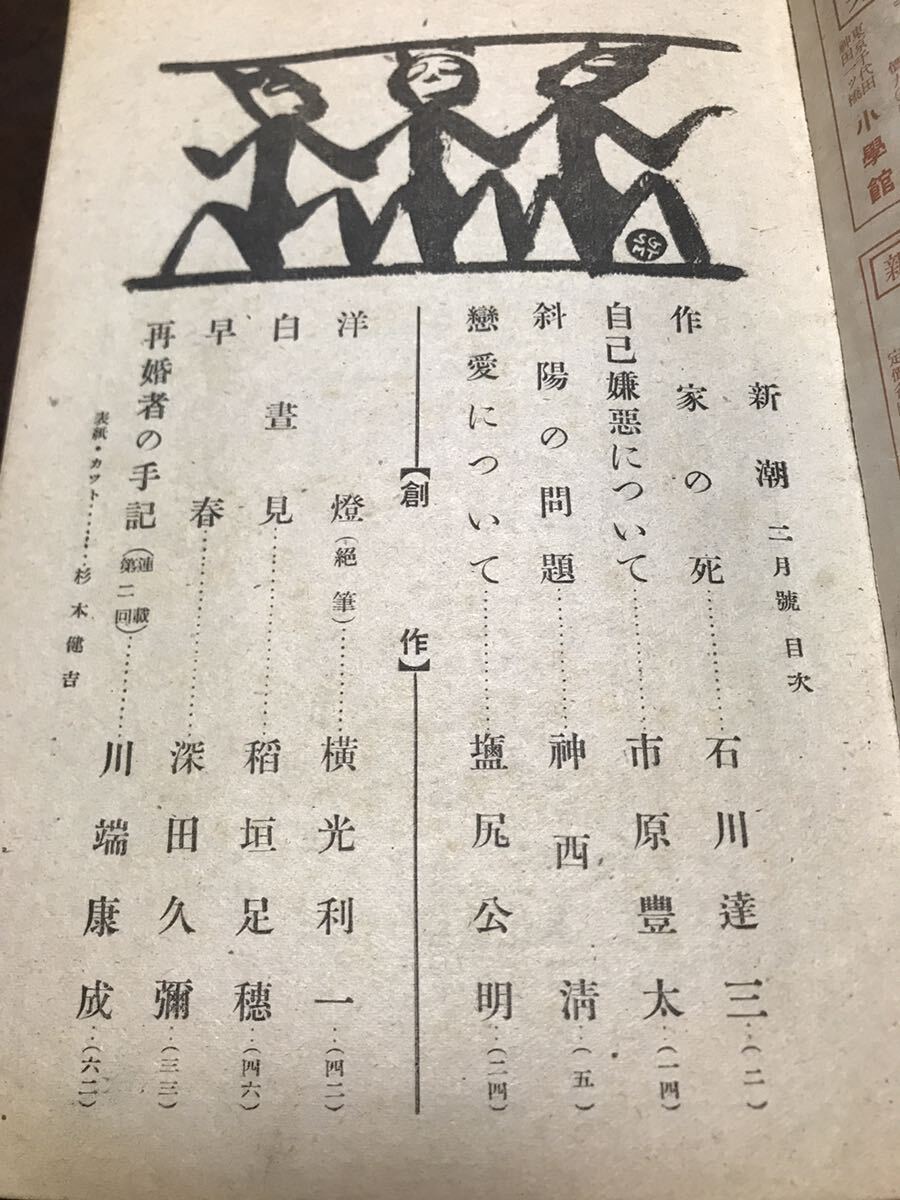 東京千代田
神田一ツ橋
小學館
SG
MT
新潮 二月號 目次
作家の死………石川達三…(二)
自己嫌惡について……市原豐太…(一四)
斜陽の問題………神西清…(五)
戀愛について………鹽尻公明…(二四)
【創作】
洋燈(絕筆)………橫光利一…(四二)
白晝見………稻垣足穗…(四六)
早春………深田久彌…(三三)
再婚者の手記(連載第二回)………川端康成…(六二)
表紙・カツト………杉本健吉